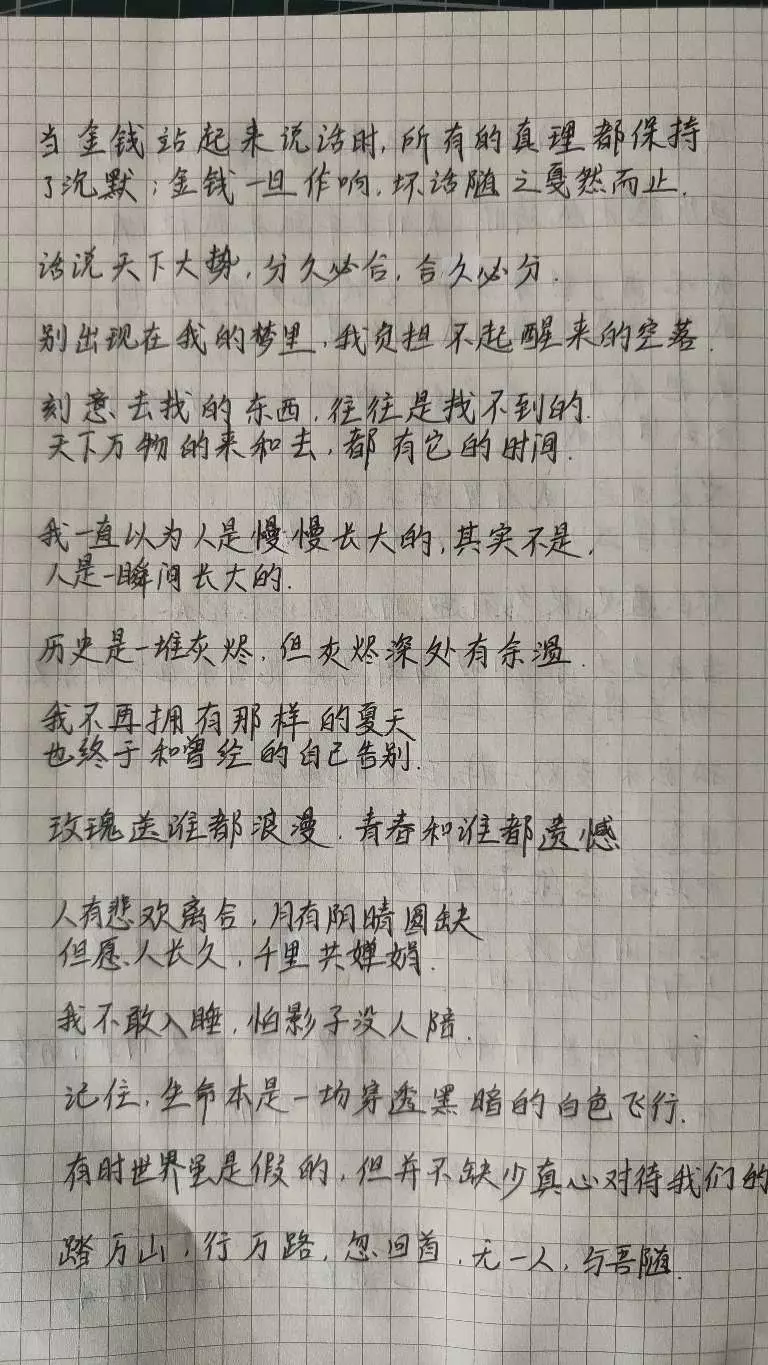 当金钱站起来说话时,所有的真理都保持
了沉默;金钱一旦作响,坏话随之戛然而止.
话说天下大势,分久必合,合久必分.
别出现在我的梦里,我负担不起醒来的空落.
刻意去找的东西,往往是找不到的.
天下万物的来和去,都有它的时间.
我一直以为人是慢慢长大的,其实不是,
人是一瞬间长大的.
历史是一堆灰烬,但灰烬深处有余温.
我不再拥有那样的夏天
也终于和曾经的自己告别.
玫瑰送谁都浪漫,青春和谁都遗憾
人有悲欢离合,月有阴晴圆缺
但愿人长久,千里共婵娟.
我不敢入睡,怕影子没人陪.
记住,生命本是一场穿透黑暗的白色飞行.
有时世界虽是假的,但并不缺少真心对待我们的
踏万山,行万路,忽回首,无一人,与吾随.